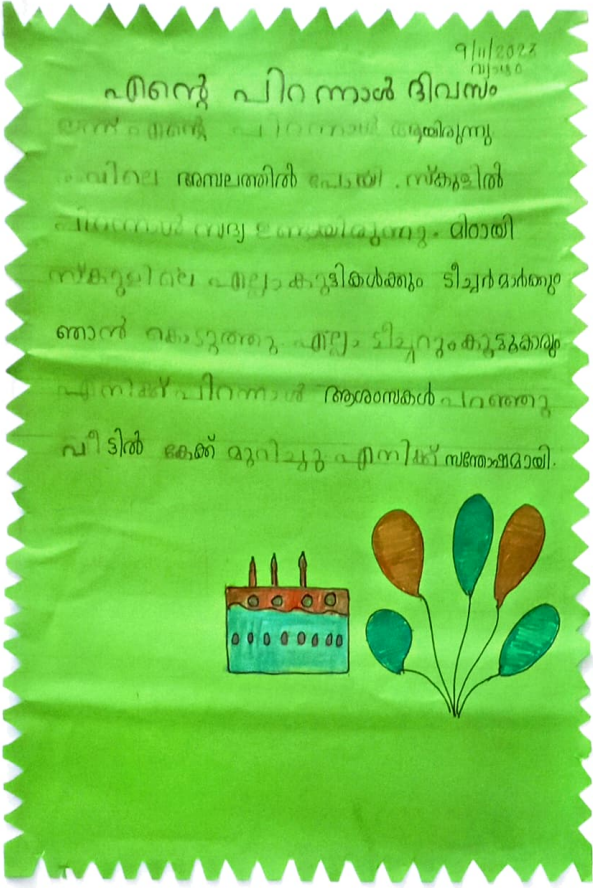 9/11/2023
വ്യാഴം
എന്റെ പിറന്നാൾ ദിവസം
ഇന്ന് എന്റെ പിറന്നാൾ ആയിരുന്നു
രാവിലെ അമ്പലത്തിൽ പോയി . സ്കൂളിൽ
പിറന്നാൾ സദ്യ ഉണ്ടായിരുന്നു. മിഠായി
സ്കൂളിലെ എല്ലാ കുട്ടികൾക്കും ടീച്ചർമാർക്കും
ഞാൻ കൊടുത്തു. എല്ലാ ടീച്ചറും കൂട്ടുകാരും
എനിക്ക് പിറന്നാൾ ആശംസകൾ പറഞ്ഞു
വീട്ടിൽ കേക്ക് മുറിച്ചു എനിക്ക് സന്തോഷമായി.